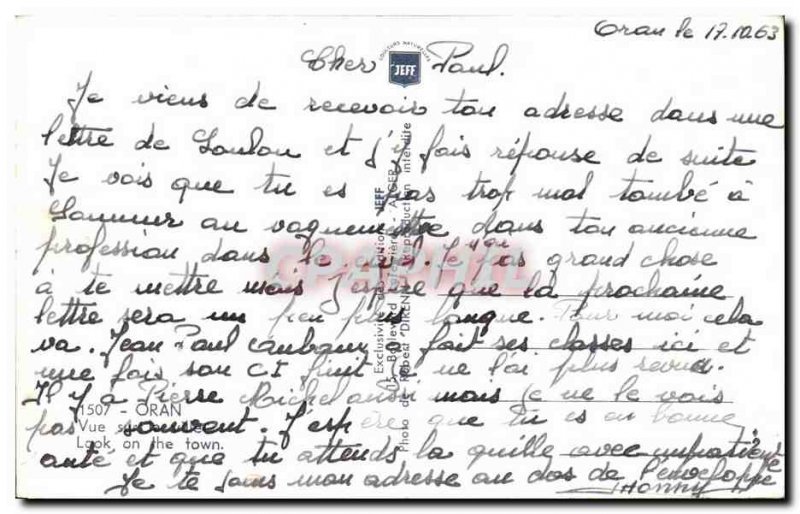 Oran le 17.10.63
Cher Paul.
Je viens de recevoir ton adresse dans une
lettre de Loulou et j'y fais réponse de suite
Je vois que tu es pas trop mal tombé à
Saumur au vaguemestre dans ton ancienne
profession dans le civil. Je n'ai pas grand chose
à te mettre mais j'espère que la prochaine
lettre sera un peu plus longue. Pour moi cela
va. Jean Paul a fait ses classes ici et
une fois son CI finit je ne l'ai plus revu.
Il y a Pierre Michel aussi mais je ne le vois
pas souvent. J'espère que tu es en bonne
santé et que tu attends la quille avec impatience
Je te sans mon adresse au dos de l'enveloppe
COULEURS NATURELLES
JEFF
Exclusivité des Editions JEFF
15, Boulevard - ALGER
Photo de Robert DIRENE Reproduction interdite
CPAPHIL
1507 - ORAN
Vue sur
Look on the town.